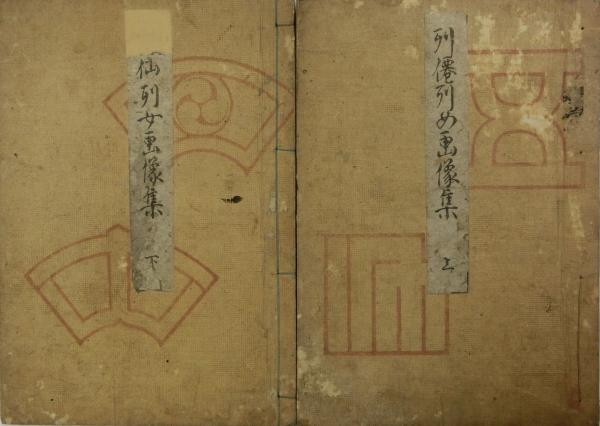 列僊列女画像集
上
仙列女画像集
下